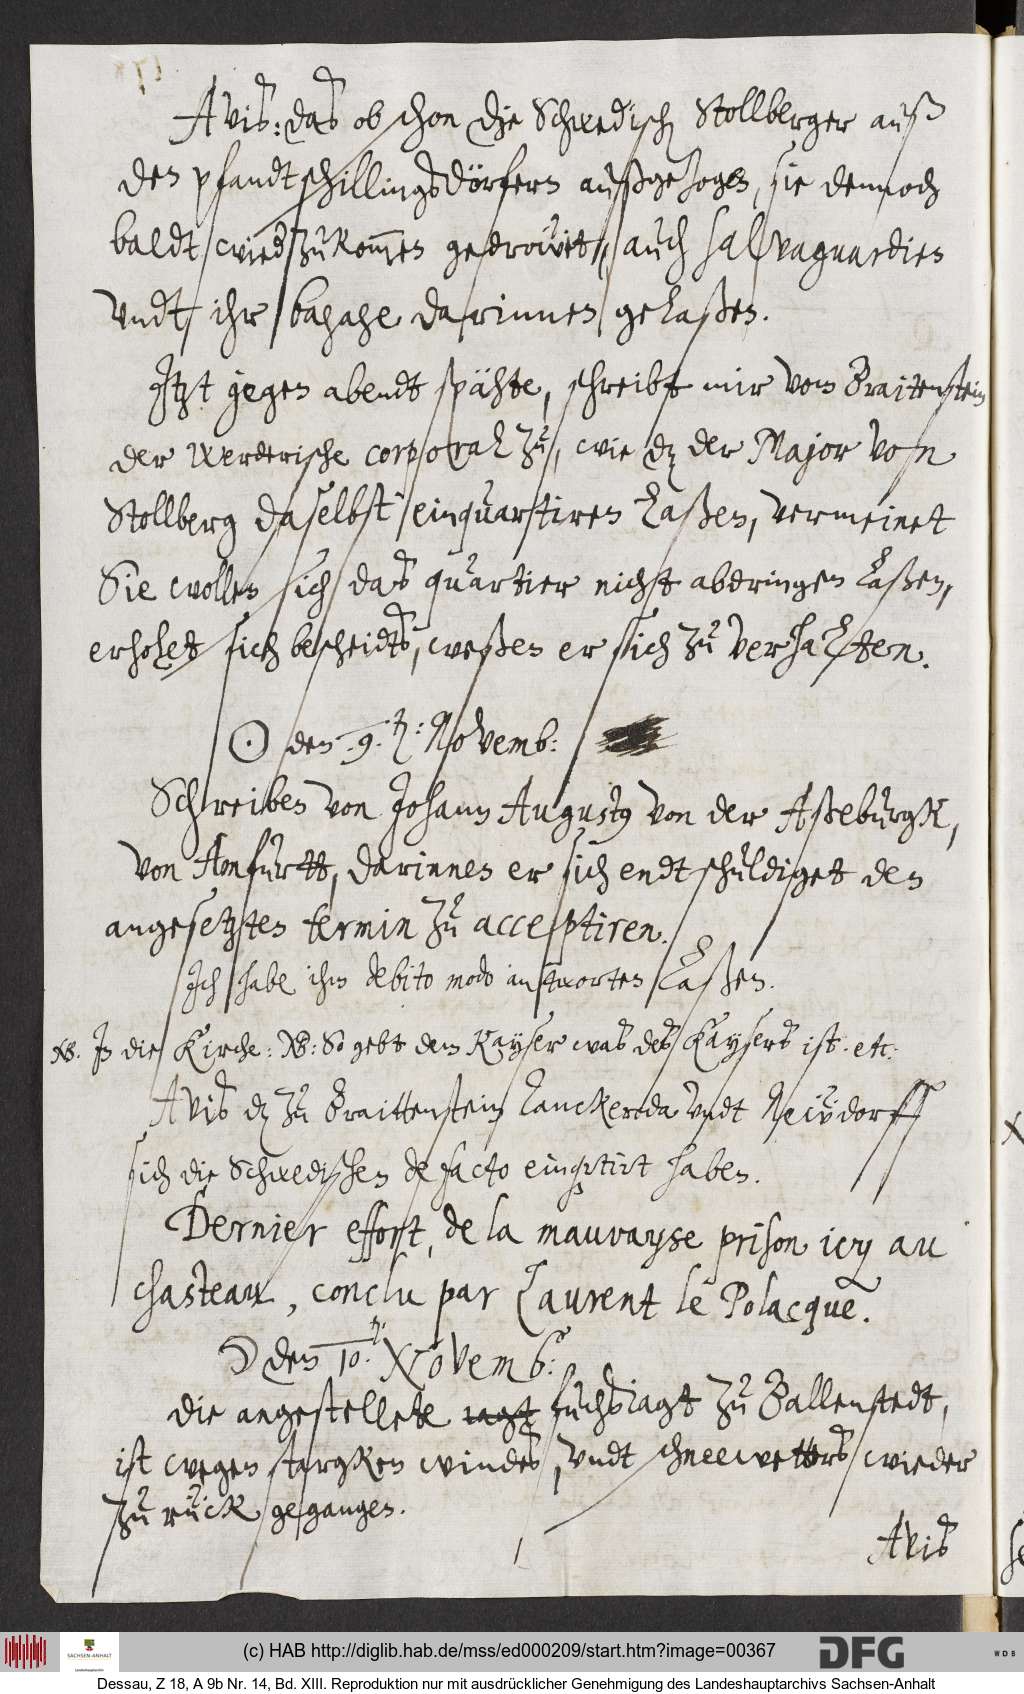 Avis: das ob schon die Schwedisch Stollberger auß
den pfandtschillingsdörfern außgezogen, sie dennoch
baldt wied zu kom̅en gedrouwet, auch salvaguardien
vndt ihr bagage darinnen gelaßen.
Itzt gegen abendt spähte, schreibt mir von Braitenstein
der Werderische corporal zu, wie dz der Major von
Stollberg daselbst einquartiren laßen, vermeinet
Sie wollen sich das quartier nicht abdringen laßen,
erholet sich bescheidts, weßen er sich zu verhalten.
☉ den .9.ten: Novemb:
Schreiben von Johann Augusty von der Aßeburgk,
von Amfurtt, darinnen er sich endtschuldiget den
angesetzten termin zu acceptiren.
Ich habe ihm debito modo antworten laßen.
NB. In die Kirche: NB: So gebt dem Kayser was des Kaysers ist. etc:
Avis dz zu Braittenstein Lanckeroda vndt Neüdorff
sich die Schwedischen de facto einq̃rtirt haben.
Dernier effort, de la mauvayse prison icy au
chasteau, conclu par Laurent le Polacque.
☽ den 10.ten: Novemb:
die angestellete jagt fuchsjagt zu Ballenstedt,
ist wegen starcken windes, vndt schneewetters wieder
zu rück gegangen.
Avis
(c) HAB http://diglib.hab.de/mss/ed000209/start.htm?image=00367
SACHSEN-ANHALT
Landeshauptarchiv
DFG
WDB
Dessau, Z 18, A 9b Nr. 14, Bd. XIII. Reproduktion nur mit ausdrücklicher Genehmigung des Landeshauptarchivs Sachsen-Anhalt